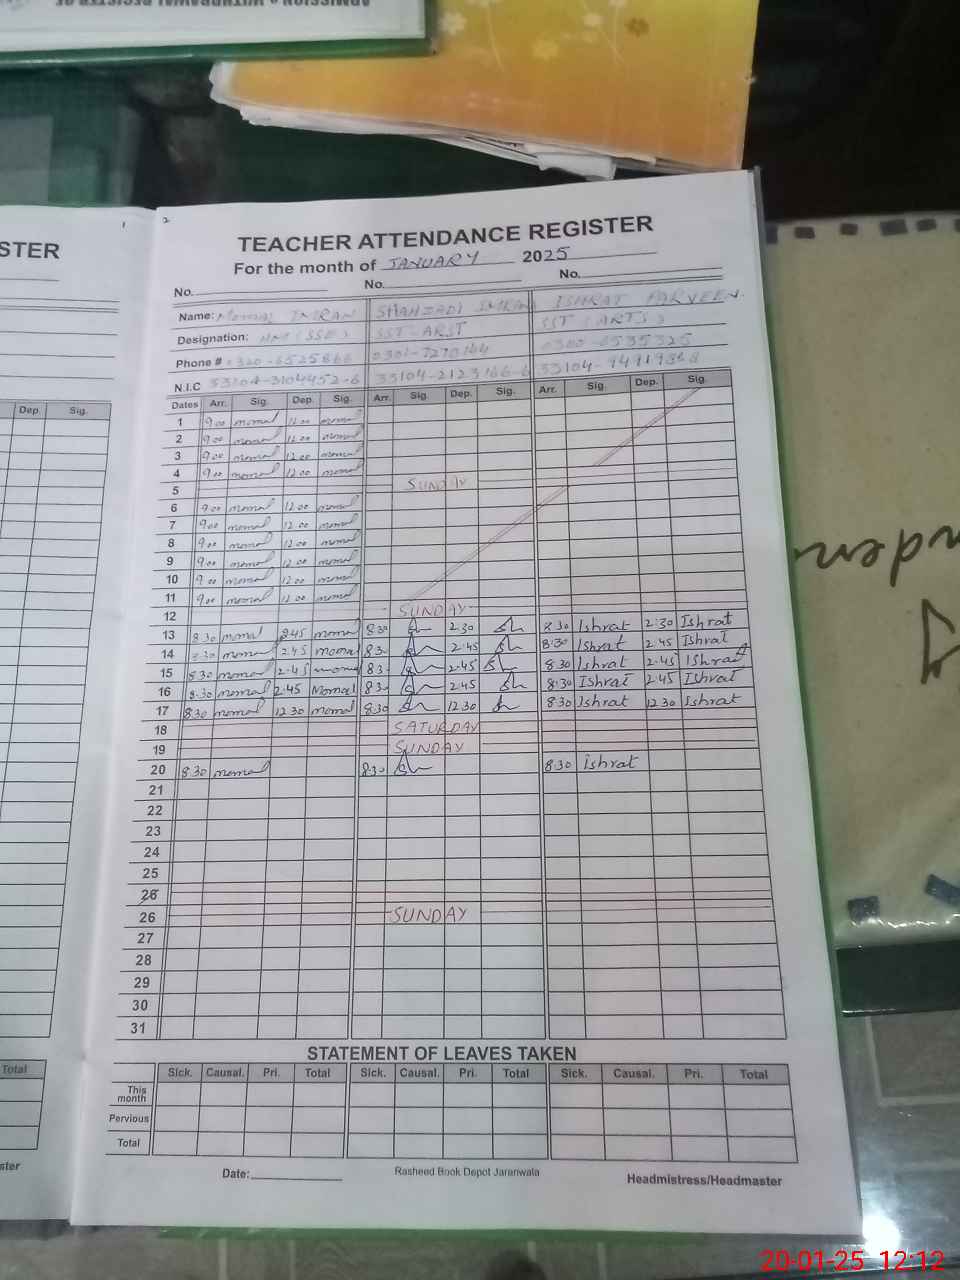 STER
1
2
TEACHER ATTENDANCE REGISTER
For the month of JANUARY 2025
No. No. No.
Name: Momal IMRAN SHAHZADI IMRAN ISHRAT PARVEEN.
Designation: HM (SSE) SST-ARST SST (ARTS)
Phone # 0300-6535325
N.I.C 33104-3104452-6 33104-2123166-6 33104-
Dep. Sig.
Dates Arr. Sig. Dep. Sig. Arr. Sig. Dep. Sig. Arr. Sig. Dep. Sig.
1 9.00 momal 12.00 momal
2 9.00 momal 12.00 momal
3 9.00 momal 12.00 momal
4 9.00 momal 12.00 momal
5 SUNDAY
6 9.00 momal 12.00 momal
7 9.00 momal 12.00 momal
8 9.00 momal 12.00 momal
9 9.00 momal 12.00 momal
10 9.00 momal 12.00 momal
11 9.00 momal 12.00 momal
12 SUNDAY
13 8.30 momal 2.45 momal 8.30 2.30 8.30 Ishrat 2.30 Ishrat
14 8.30 momal 2.45 momal 8.30 2.45 8.30 Ishrat 2.45 Ishrat
15 8.30 momal 2.45 momal 8.30 2.45 8.30 Ishrat 2.45 Ishrat
16 8.30 momal 2.45 Momal 8.30 2.45 8.30 Ishrat 2.45 Ishrat
17 8.30 momal 12.30 momal 8.30 12.30 8.30 Ishrat 12.30 Ishrat
18 SATURDAY
19 SUNDAY
20 8.30 momal 8.30 8.30 Ishrat
21
22
23
24
25
26
26 SUNDAY
27
28
29
30
31
STATEMENT OF LEAVES TAKEN
Total
Sick. Causal. Pri. Total Sick. Causal. Pri. Total Sick. Causal. Pri. Total
This month
Pervious
Total
ster
Date: Rasheed Book Depot Jaranwala Headmistress/Headmaster
20-01-25 12:12